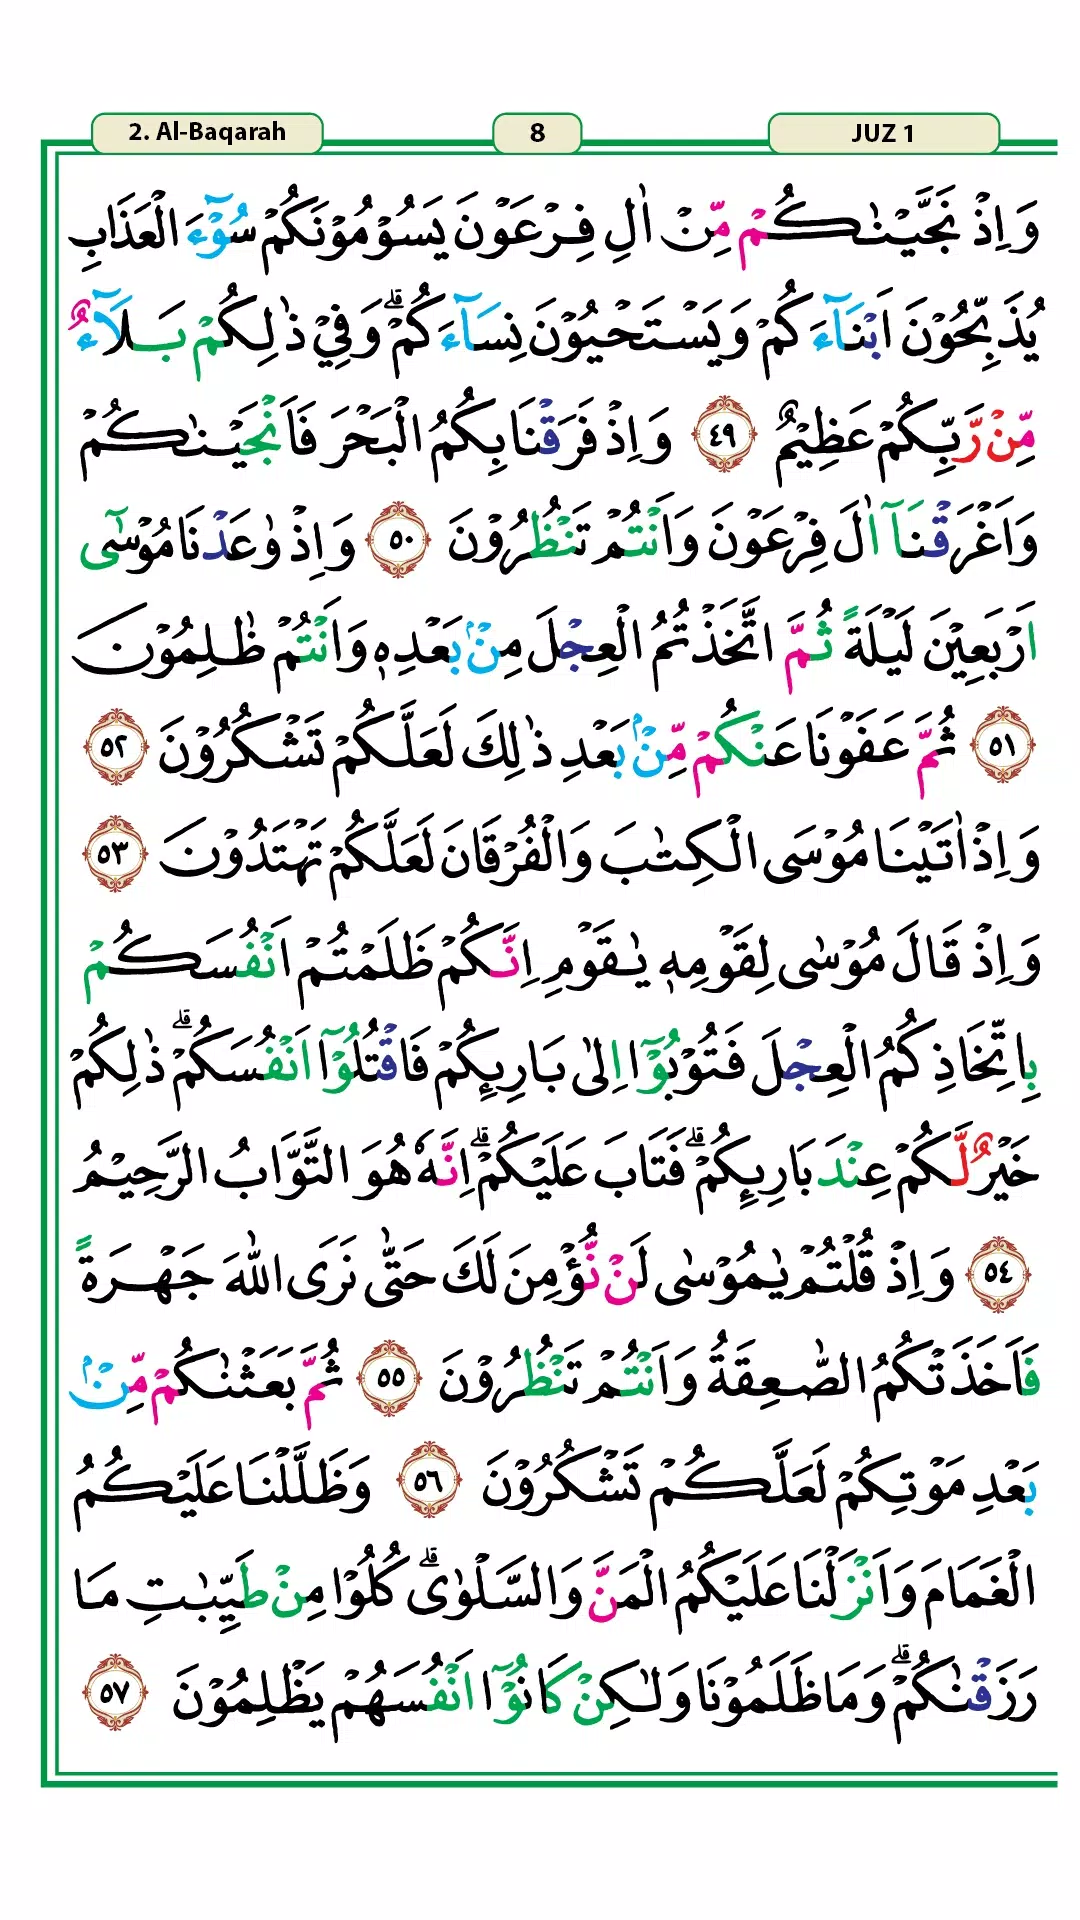 2. Al-Baqarah
8
JUZ 1
وَاِذْ نَجَّيْنٰكُمْ مِّنْ اٰلِ فِرْعَوْنَ يَسُوْمُوْنَكُمْ سُوْۤءَ الْعَذَابِ
يُذَبِّحُوْنَ اَبْنَاۤءَكُمْ وَيَسْتَحْيُوْنَ نِسَاۤءَكُمْ ۗ وَفِيْ ذٰلِكُمْ بَلَاۤءٌ
مِّنْ رَّبِّكُمْ عَظِيْمٌ ٤٩ وَاِذْ فَرَقْنَا بِكُمُ الْبَحْرَ فَاَنْجَيْنٰكُمْ
وَاَغْرَقْنَآ اٰلَ فِرْعَوْنَ وَاَنْتُمْ تَنْظُرُوْنَ ٥٠ وَاِذْ وٰعَدْنَا مُوْسٰٓى
اَرْبَعِيْنَ لَيْلَةً ثُمَّ اتَّخَذْتُمُ الْعِجْلَ مِنْۢ بَعْدِهٖ وَاَنْتُمْ ظٰلِمُوْنَ
٥١ ثُمَّ عَفَوْنَا عَنْكُمْ مِّنْۢ بَعْدِ ذٰلِكَ لَعَلَّكُمْ تَشْكُرُوْنَ ٥٢
وَاِذْ اٰتَيْنَا مُوْسَى الْكِتٰبَ وَالْفُرْقَانَ لَعَلَّكُمْ تَهْتَدُوْنَ ٥٣
وَاِذْ قَالَ مُوْسٰى لِقَوْمِهٖ يٰقَوْمِ اِنَّكُمْ ظَلَمْتُمْ اَنْفُسَكُمْ
بِاتِّخَاذِكُمُ الْعِجْلَ فَتُوْبُوْٓا اِلٰى بَارِىِٕكُمْ فَاقْتُلُوْٓا اَنْفُسَكُمْ ۗ ذٰلِكُمْ
خَيْرٌ لَّكُمْ عِنْدَ بَارِىِٕكُمْ ۗ فَتَابَ عَلَيْكُمْ ۗ اِنَّهٗ هُوَ التَّوَّابُ الرَّحِيْمُ
٥٤ وَاِذْ قُلْتُمْ يٰمُوْسٰى لَنْ نُّؤْمِنَ لَكَ حَتّٰى نَرَى اللّٰهَ جَهْرَةً
فَاَخَذَتْكُمُ الصّٰعِقَةُ وَاَنْتُمْ تَنْظُرُوْنَ ٥٥ ثُمَّ بَعَثْنٰكُمْ مِّنْۢ
بَعْدِ مَوْتِكُمْ لَعَلَّكُمْ تَشْكُرُوْنَ ٥٦ وَظَلَّلْنَا عَلَيْكُمُ
الْغَمَامَ وَاَنْزَلْنَا عَلَيْكُمُ الْمَنَّ وَالسَّلْوٰى ۗ كُلُوْا مِنْ طَيِّبٰتِ مَا
رَزَقْنٰكُمْ ۗ وَمَا ظَلَمُوْنَا وَلٰكِنْ كَانُوْٓا اَنْفُسَهُمْ يَظْلِمُوْنَ ٥٧